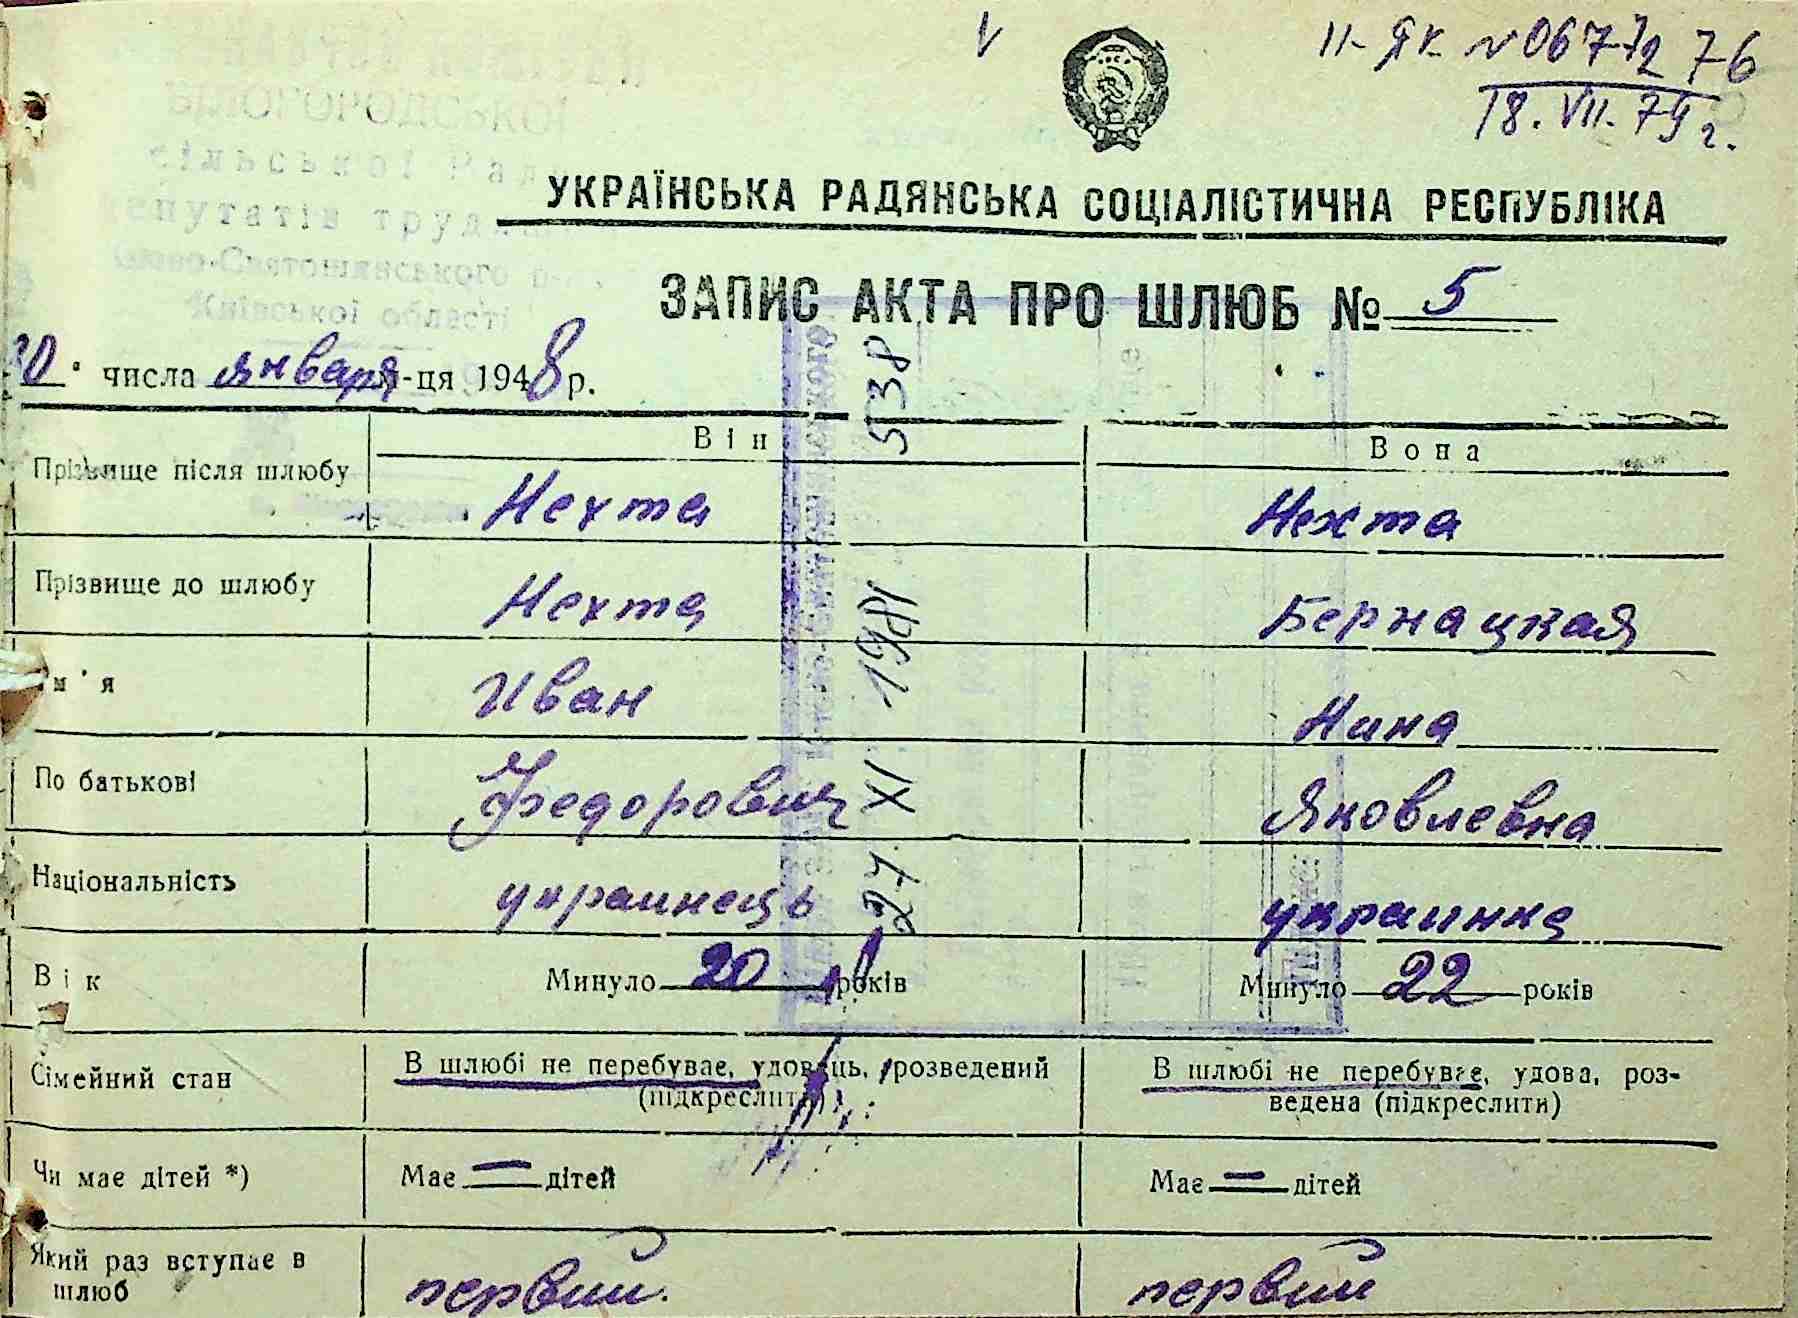 V
II-ЯК №067172 76
18. VII. 79 г.
БІЛОГОРОДСЬКОЇ
сільської Рад
депутатів труд
Києво-Святошинського р-
Київської області
УКРАЇНСЬКА РАДЯНСЬКА СОЦІАЛІСТИЧНА РЕСПУБЛІКА
ЗАПИС АКТА ПРО ШЛЮБ № 5
числа января м-ця 1948 р.
Він
Вона
Прізвище після шлюбу
Нехта
Нехта
Прізвище до шлюбу
Нехта
Бернацкая
Ім'я
Иван
Нина
По батькові
Федорович
Яковлевна
Національність
украинець
украинка
Вік
Минуло 20 років
Минуло 22 років
Сімейний стан
В шлюбі не перебуває, удовець, розведений
(підкреслити)
В шлюбі не перебуває, удова, роз-
ведена (підкреслити)
Чи має дітей *)
Має — дітей
Має — дітей
Який раз вступає в
шлюб
первий.
первий
24 XI 1981 5338